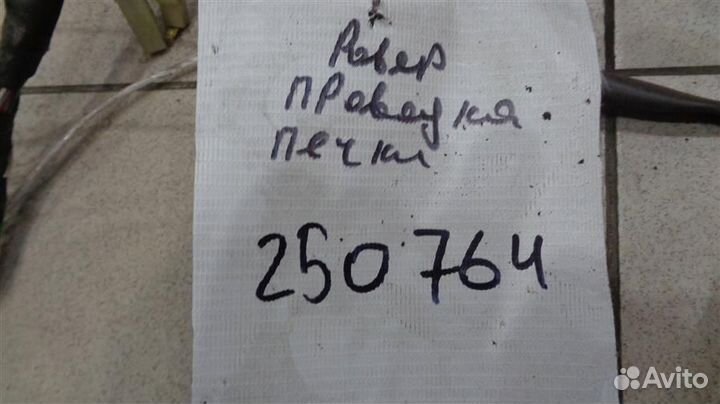 Ровер
проводка
печки
250764
Avito